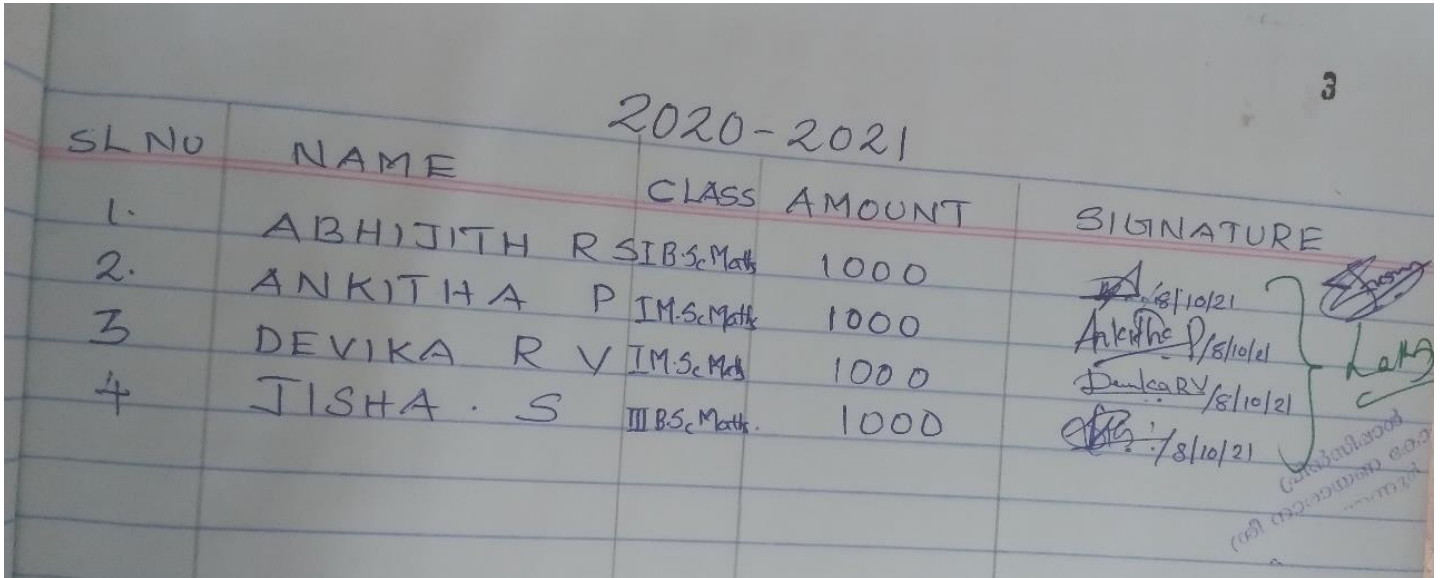 3
2020-2021
SL NO NAME CLASS AMOUNT SIGNATURE
1. ABHIJITH R S I B.Sc Maths 1000 /8/10/21
2. ANKITHA P I M.Sc Maths 1000 Ankitha P/8/10/21
3 DEVIKA R V I M.Sc Maths 1000 Devika RV/8/10/21
4 JISHA . S III B.Sc Maths. 1000 /8/10/21
പ്രിൻസിപ്പാൾ
ശ്രീ നാരായണ